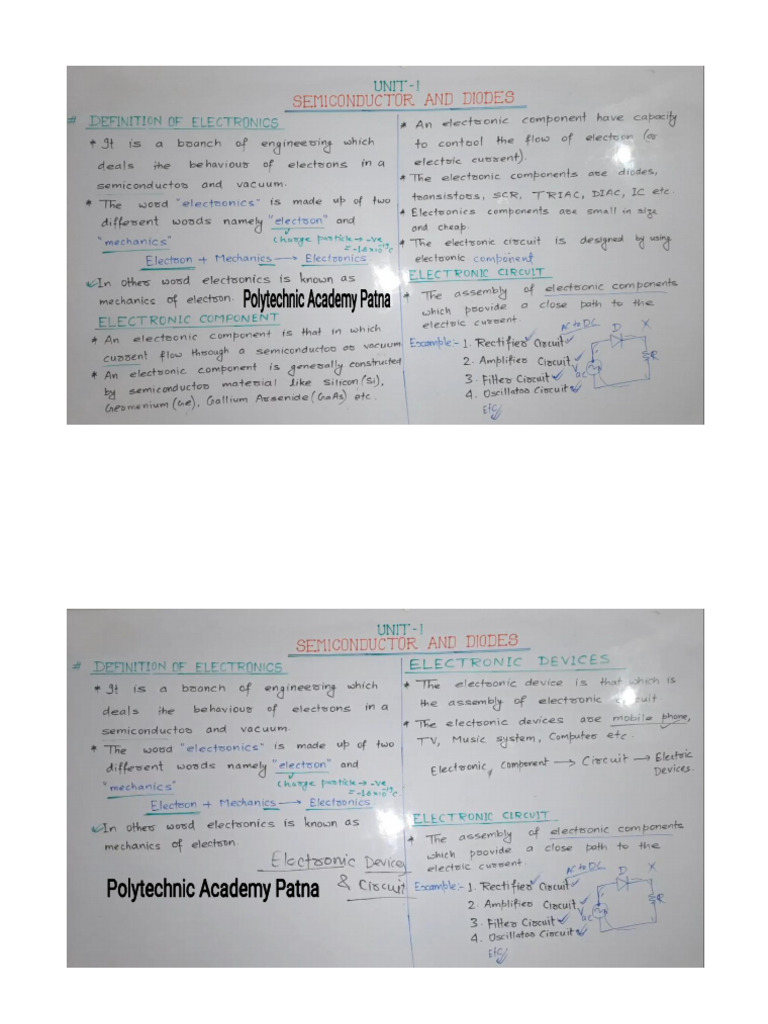 UNIT-1
SEMICONDUCTOR AND DIODES
# DEFINITION OF ELECTRONICS
* It is a branch of engineering which
deals the behaviour of electrons in a
semiconductor and vacuum.
* The word "electronics" is made up of two
different words namely "electron" and
"mechanics"
charge particle → -ve
= -1.6×10⁻¹⁹c
Electron + Mechanics → Electronics
✓ In other word electronics is known as
mechanics of electron.
Polytechnic Academy Patna
ELECTRONIC COMPONENT
* An electronic component is that in which
current flow through a semiconductor or vacuum
* An electronic component is generally constructed
by semiconductor material like Silicon (Si),
Geomenium (Ge), Gallium Arsenide (GaAs) etc.
* An electronic component have capacity
to control the flow of electron (or
electric current).
* The electronic components are diodes,
transistors, SCR, TRIAC, DIAC, IC etc.
* Electronics components are small in size
and cheap.
* The electronic circuit is designed by using
electronic component
ELECTRONIC CIRCUIT
* The assembly of electronic components
which provide a close path to the
electric current.
AC to DC
Example:- 1. Rectifier Circuit ✓
2. Amplifier Circuit ✓
3. Filter Circuit ✓
4. Oscillator Circuit ✓
Etc
D X
R
AC
UNIT-1
SEMICONDUCTOR AND DIODES
# DEFINITION OF ELECTRONICS
* It is a branch of engineering which
deals the behaviour of electrons in a
semiconductor and vacuum.
* The word "electronics" is made up of two
different words namely "electron" and
"mechanics"
charge particle → -ve
= -1.6×10⁻¹⁹c
Electron + Mechanics → Electronics
✓ In other word electronics is known as
mechanics of electron.
Electronic Devices
& Circuit
Polytechnic Academy Patna
ELECTRONIC DEVICES
* The electronic device is that which is
the assembly of electronic circuit
* The electronic devices are mobile phone,
TV, Music system, Computer etc.
Electronic component → Circuit → Electric
Devices.
ELECTRONIC CIRCUIT
* The assembly of electronic components
which provide a close path to the
electric current.
AC to DC
Example:- 1. Rectifier Circuit ✓
2. Amplifier Circuit ✓
3. Filter Circuit ✓
4. Oscillator Circuit ✓
Etc
D X
R
AC